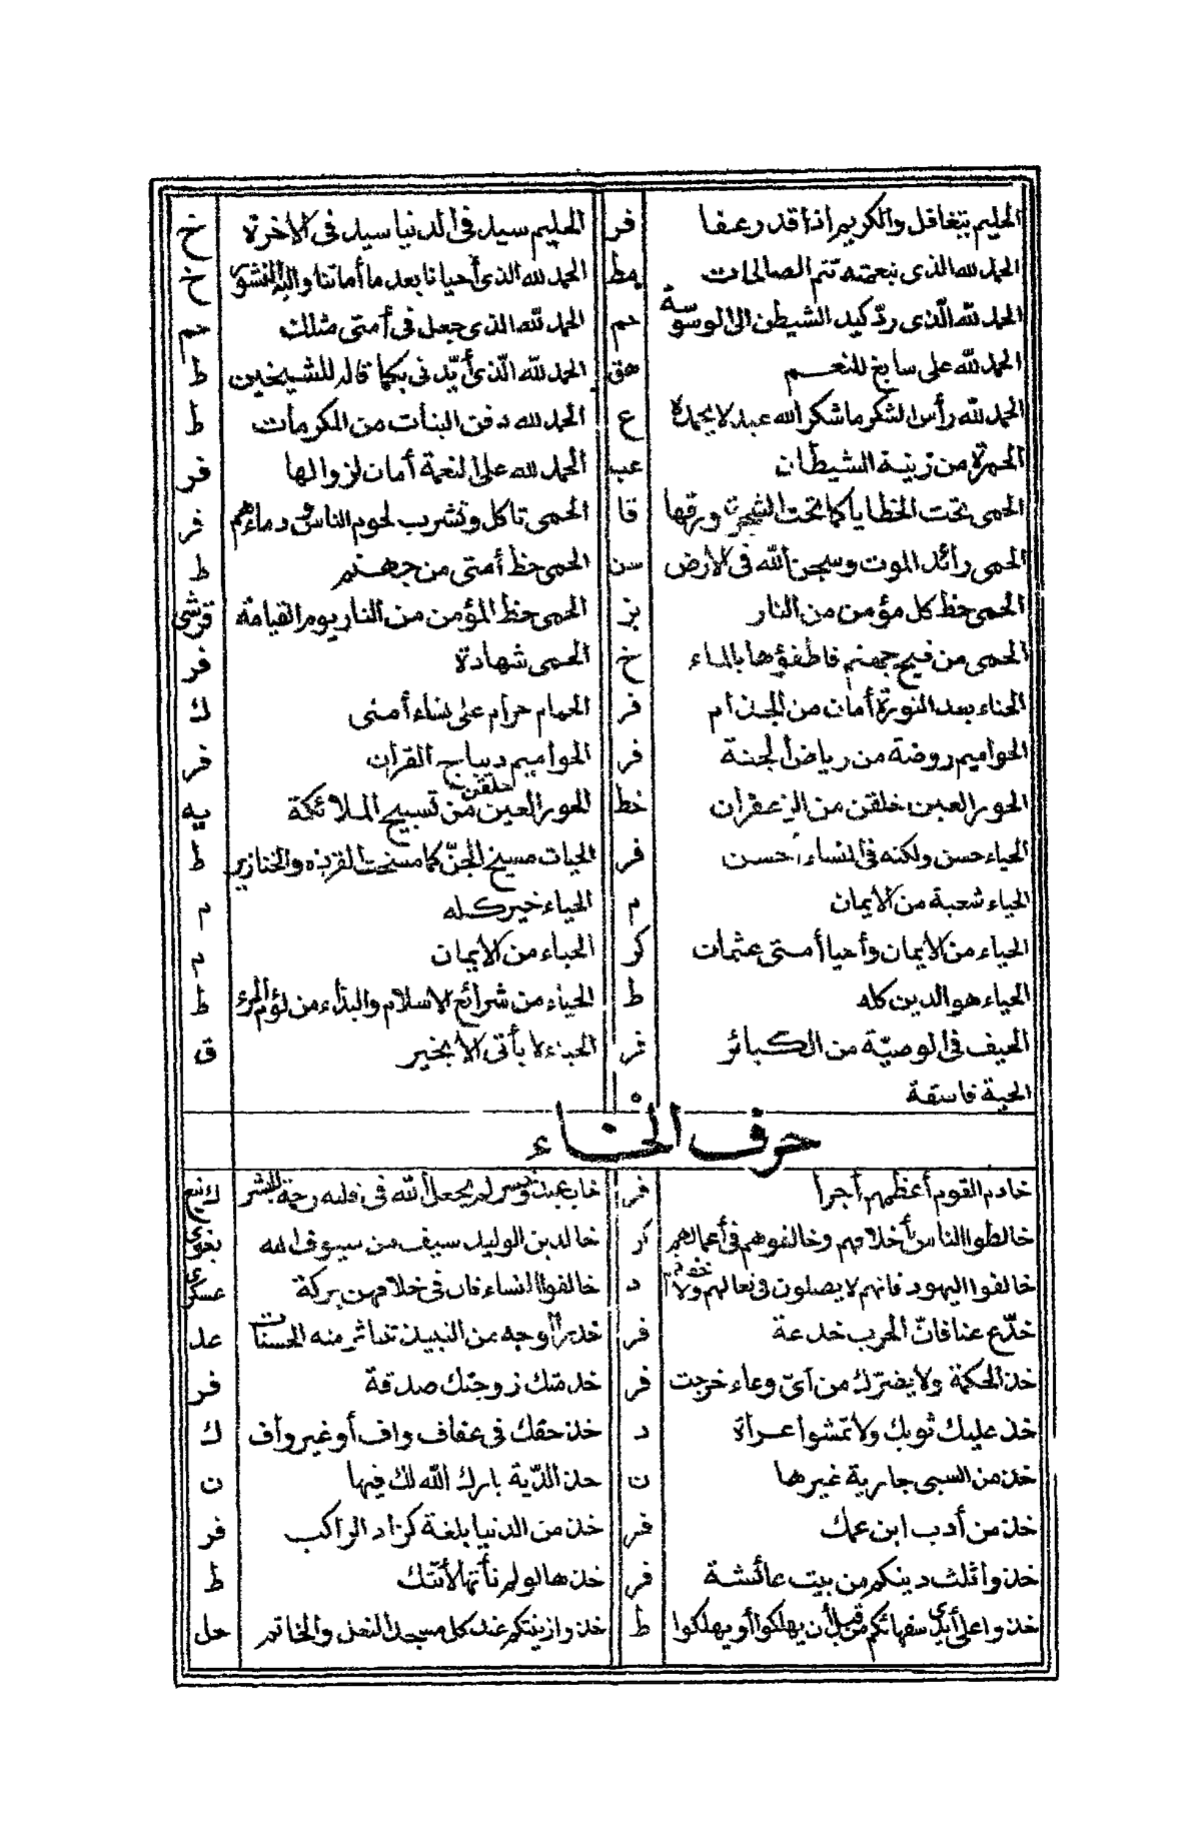 الحليم يتغافل والكريم اذا قدر عفا فر الحليم سيد فى الدنيا سيد فى الاخرة خ
الحمد لله الذى بنعمته تتم الصالحات مط الحمد لله الذى أحيانا بعد ما أماتنا واليه النشور خ
الحمد لله الّذى ردّ كيد الشيطن الى الوسوسة حم الحمد لله الذى جعل فى أمتى مثلك حم
الحمد لله على سابغ النعم هق الحمد لله الّذى أيّدنى بكما قاله للشيخين ط
الحمد لله رأس الشكر ما شكر الله عبد لا يحمده ع الحمد لله دفن البنات من المكرمات ط
الحمرة من زينة الشيطان عب الحمد لله على النعمة أمان لزوالها فر
الحمى تحت الخطايا كما تحت الشجرة ورقها قا الحمى تاكل وتشرب لحوم الناس ودماءهم فر
الحمى رائد الموت وسجن الله فى الارض سن الحمى حظ أمتى من جهنم ط
الحمى حظ كل مؤمن من النار بز الحمى حظ المؤمن من النار يوم القيامة قرشى
الحمى من فيح جهنم فاطفؤها بالماء خ الحمى شهادة فر
الحناء بعد النورة أمان من الجذام فر الحمام حرام على نساء أمتى ك
الحواميم روضة من رياض الجنة فر الحواميم ديباج القران فر
الحور العين خلقن من الزعفران خط الحور العين خلقن من تسبيح الملائكة يه
الحياء حسن ولكنه فى النساء أحسن فر الحيات مسيخ الجنّ كما مسخت القردة والخنازير ط
الحياء شعبة من الايمان م الحياء خير كله م
الحياء من الايمان وأحيا أمتى عثمان كر الحياء من الايمان م
الحياء هو الدين كله ط الحياء من شرائع الاسلام والبذاء من لؤم المرء ط
الحيف فى الوصيّة من الكبائر فر الحياء لا يأتى الا بخير ق
الحية فاسقة ه
حرف الخاء
خادم القوم أعظمهم أجرا فر خاب عبد وخسر لم يجعل الله فى قلبه رحمة للبشر
خالطوا الناس بأخلاقهم وخالفوهم فى أعمالهم كر خالد بن الوليد سيف من سيوف الله بغوى
خالفوا اليهود فانهم لا يصلون فى نعالهم ولا خفافهم د خالفوا النساء فان فى خلافهن بركة عسكرى
خذّع عنا فانّ الحرب خدعة فر خدر الوجه من النبيذ تتناثر منه الحسنات عد
خذ الحكمة ولا يضرك من أىّ وعاء خرجت فر خدمتك زوجتك صدقة فر
خذ عليك ثوبك ولا تمشوا عراة د خذ حقك فى عفاف واف أو غير واف ك
خذ من السبى جارية غيرها ن خذ الدّية بارك الله لك فيها ن
خذ من أدب ابن عمك فر خذ من الدنيا بلغة كزاد الراكب فر
خذوا ثلث دينكم من بيت عائشة فر خذها لو لم تأتها لأتتك ط
خذوا على أيدى سفهائكم من قبل أن يهلكوا أو يهلكوا ط خذوا زينتكم عند كل مسجد النعل والخاتم حل